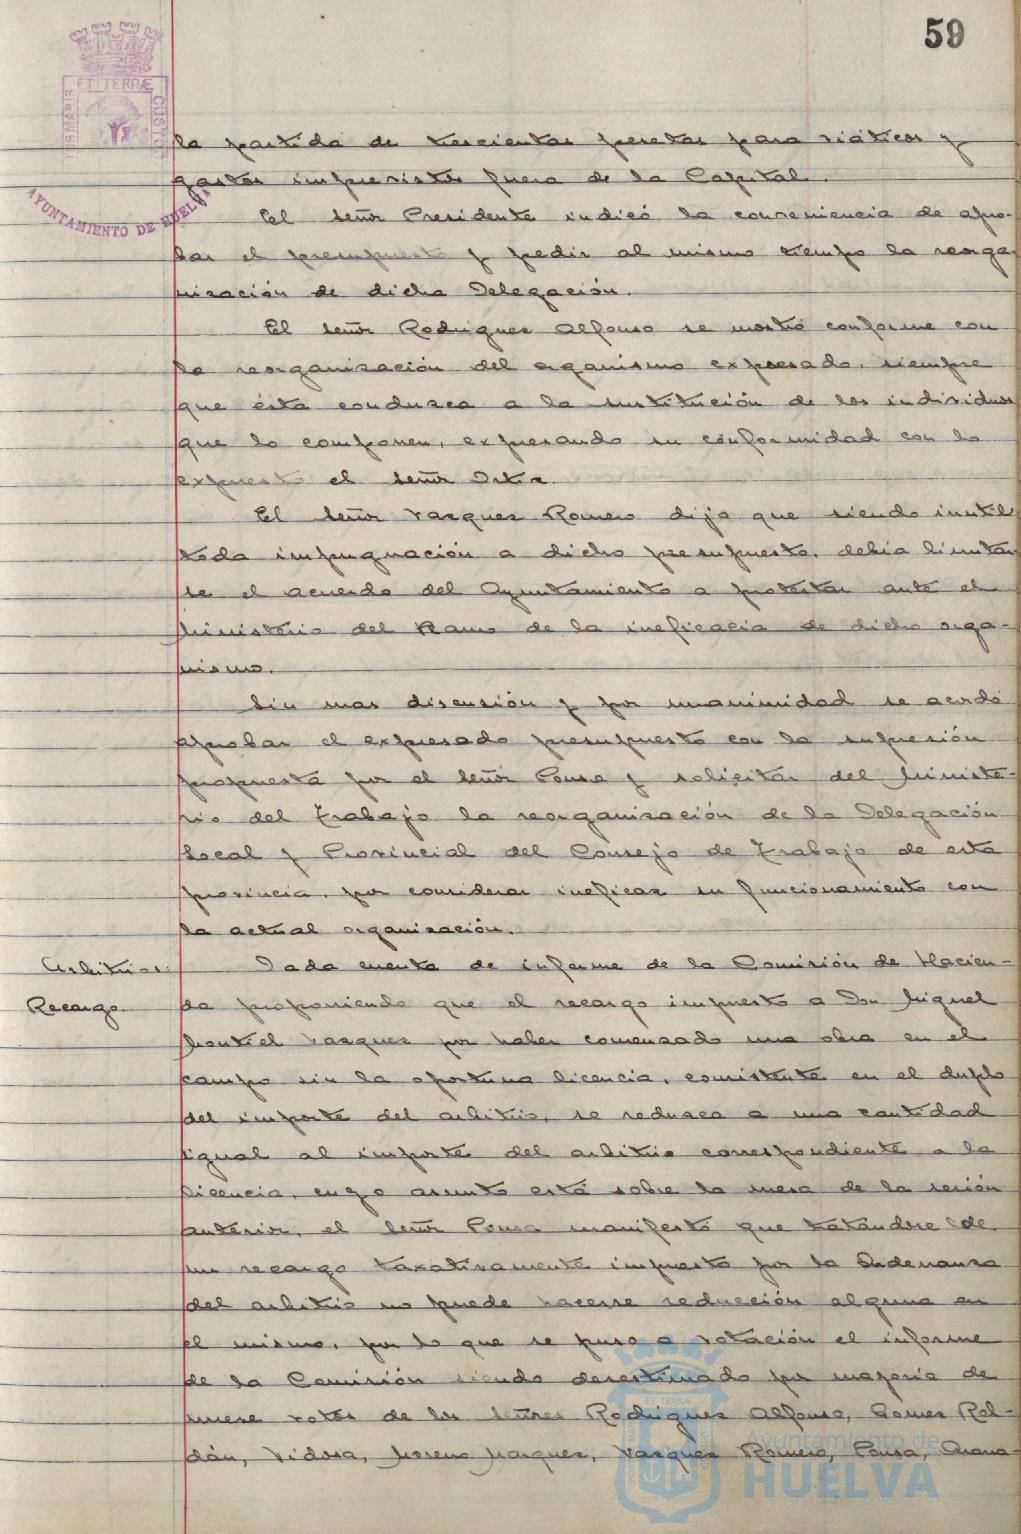 59
ET TERRÆ
AYUNTAMIENTO DE HUELVA
la partida de trescientas pesetas para viáticos y
gastos imprevistos fuera de la Capital.
El señor Presidente indicó la conveniencia de apro-
bar el presupuesto y pedir al mismo tiempo la reorga-
nización de dicha Delegación.
El señor Rodriguez Alfonso se mostró conforme con
la reorganización del organismo expresado, siempre
que ésta conduzca a la sustitución de los individuos
que lo componen, expresando su conformidad con lo
expuesto el señor Ortiz.
El señor Vazquez Romero dijo que siendo inutil
toda impugnación a dicho presupuesto, debia limitar
se el acuerdo del Ayuntamiento a protestar ante el
Ministerio del Ramo de la ineficacia de dicho orga-
nismo.
Sin mas discusión y por unanimidad se acordó
aprobar el expresado presupuesto con la supresión
propuesta por el señor Ponsa y solicitar del Ministe-
rio del Trabajo la reorganización de la Delegación
Local y Provincial del Consejo de Trabajo de esta
provincia, por considerar ineficaz su funcionamiento con
la actual organización.
Arbitrios:
Recargo.
Dada cuenta de informe de la Comisión de Hacien-
da proponiendo que el recargo impuesto a Don Miguel
Montiel Vazquez por haber comenzado una obra en el
campo sin la oportuna licencia, consistente en el duplo
del importe del arbitrio, se reduzca a una cantidad
igual al importe del arbitrio correspondiente a la
licencia, cuyo asunto está sobre la mesa de la sesión
anterior, el señor Ponsa manifestó que tratandose de
un recargo taxativamente impuesto por la Ordenanza
del arbitrio no puede hacerse reducción alguna en
el mismo, por lo que se puso a votación el informe
de la Comisión siendo desestimado por mayoria de
nueve votos de los señores Rodriguez Alfonso, Gomez Rol-
dán, Vidosa, Moreno Marquez, Vazquez Romero, Ponsa,
Ayuntamiento de
HUELVA